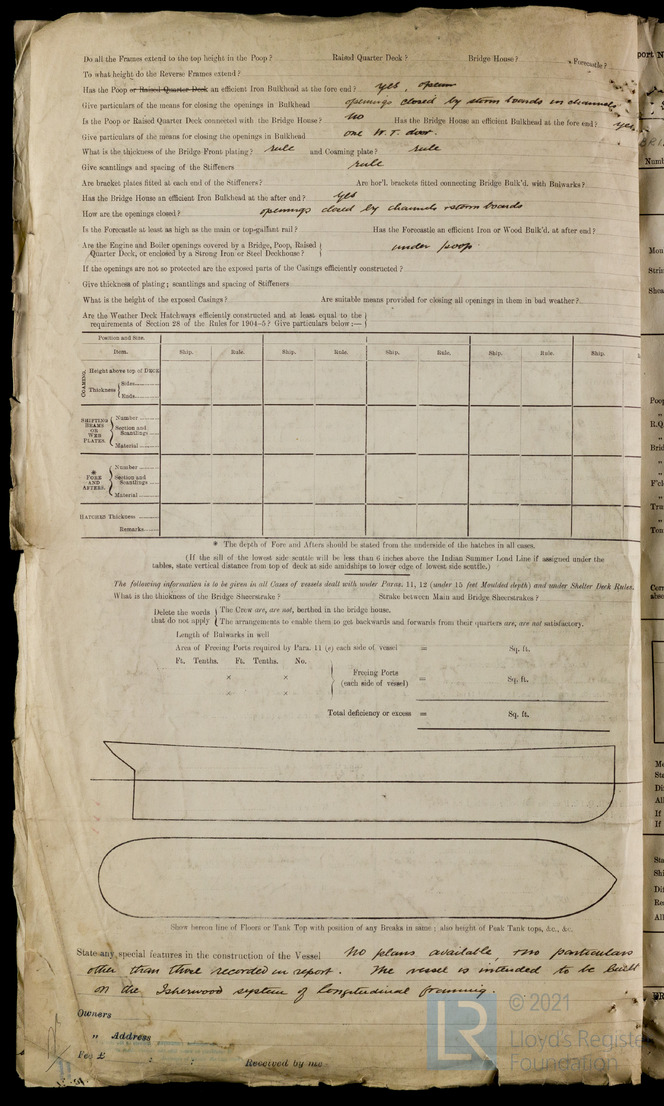 Do all the Frames extend to the top height in the Poop? Raised Quarter Deck? Bridge House? Forecastle?
To what height do the Reverse Frames extend?
Has the Poop or Raised Quarter Deck an efficient Iron Bulkhead at the fore end? yes, open
Give particulars of the means for closing the openings in Bulkhead openings closed by storm boards in channels
Is the Poop or Raised Quarter Deck connected with the Bridge House? No Has the Bridge House an efficient Bulkhead at the fore end? yes
Give particulars of the means for closing the openings in Bulkhead one W.T. door.
What is the thickness of the Bridge-Front plating? rule and Coaming plate? rule
Give scantlings and spacing of the Stiffeners rule
Are bracket plates fitted at each end of the Stiffeners? Are hor'l. brackets fitted connecting Bridge Bulk'd. with Bulwarks?
Has the Bridge House an efficient Iron Bulkhead at the after end? yes
How are the openings closed? openings closed by channels & storm boards
Is the Forecastle at least as high as the main or top-gallant rail? Has the Forecastle an efficient Iron or Wood Bulk'd, at after end?
Are the Engine and Boiler openings covered by a Bridge, Poop, Raised
Quarter Deck, or enclosed by a Strong Iron or Steel Deckhouse? under poop
If the openings are not so protected are the exposed parts of the Casings efficiently constructed?
Give thickness of plating; scantlings and spacing of Stiffeners
What is the height of the exposed Casings? Are suitable means provided for closing all openings in them in bad weather?
Are the Weather Deck Hatchways efficiently constructed and at least equal to the
requirements of Section 28 of the Rules for 1904-5? Give particulars below:—
Position and Size.
Item. Ship. Rule. Ship. Rule. Ship. Rule. Ship. Rule. Ship.
COAMING. Height above top of DECK
Thickness Sides
Ends
SHIFTING BEAMS OR WEB PLATES. Number
Section and Scantlings
Material
* FORE AND AFTERS. Number
Section and Scantlings
Material
HATCHES Thickness
Remarks
* The depth of Fore and Afters should be stated from the underside of the hatches in all cases.
(If the sill of the lowest side scuttle will be less than 6 inches above the Indian Summer Load Line if assigned under the
tables, state vertical distance from top of deck at side amidships to lower edge of lowest side scuttle.)
The following information is to be given in all Cases of vessels dealt with under Paras. 11, 12 (under 15 feet Moulded depth) and under Shelter Deck Rules.
What is the thickness of the Bridge Sheerstrake? Strake between Main and Bridge Sheerstrakes?
Delete the words that do not apply
The Crew are, are not, berthed in the bridge house.
The arrangements to enable them to get backwards and forwards from their quarters are, are not satisfactory.
Length of Bulwarks in well
Area of Freeing Ports required by Para. 11 (e) each side of vessel = Sq. ft.
Ft. Tenths. Ft. Tenths. No.
× ×
× ×
Freeing Ports
(each side of vessel) = Sq. ft.
Total deficiency or excess = Sq. ft.
Show hereon line of Floors or Tank Top with position of any Breaks in same; also height of Peak Tank tops, &c., &c.
State any special features in the construction of the Vessel No plans available, & no particulars
other than those recorded in report. The vessel is intended to be built
on the Isherwood system of longitudinal framing.
Owners
" Address
Fee £ : :
Received by me
LR © 2021
Lloyd's Register
Foundation